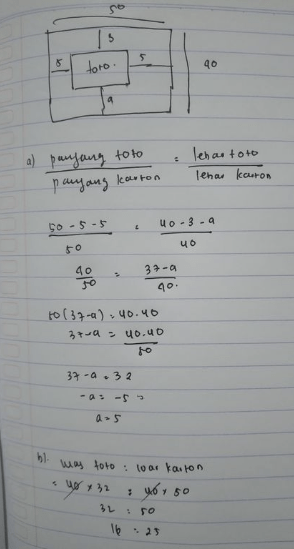 50
3
5 foto. 5
40
a
a) panjang foto / panjang karton = lebar foto / lebar karton
50 - 5 - 5 / 50 = 40 - 3 - a / 40
40 / 50 = 37 - a / 40.
50 (37 - a) = 40.40
37 - a = 40.40 / 50
37 - a = 32
-a = -5
a = 5
b). luas foto : luas karton
= 40 x 32 : 40 x 50
32 : 50
16 : 25